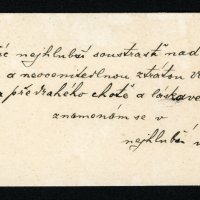 nejhlubší soustrast nad
a neocenitedlnou ztrátou
předrahého chotě a láskave
znamenám se v
nejhlubší